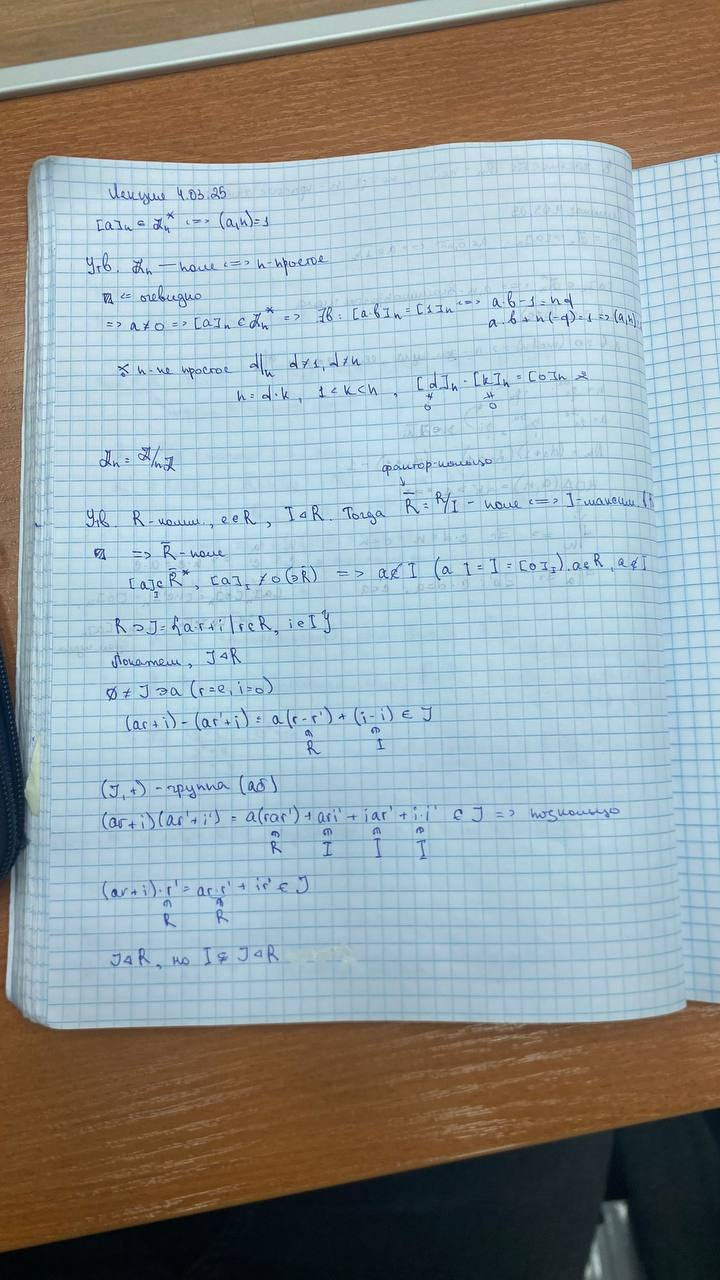 Лекция 4.03.25
[a]ₙ ∈ ℤₙ* <=> (a,n)=1
Утв. ℤₙ — поле <=> n-простое
<= очевидно
=> a≠0 => [a]ₙ ∈ ℤₙ* => ∃b: [a·b]ₙ = [1]ₙ <=> a·b-1=nq
a·b+n(-q)=1 => (a,n)
n-не простое d|n d≠1, d≠n
n=d·k, 1<k<n, [d]ₙ·[k]ₙ = [0]ₙ
≠ ≠
0 0
ℤₙ = ℤ/nℤ
фактор-кольцо
↓
Утв. R-комм., e∈R, I⊲R. Тогда R̄ = R/I - поле <=> I-максим.
=> R̄-поле
[a]_I ∈ R̄*, [a]_I ≠ 0 (∋R̄) => a∉I (a I = I = [0]_I). a∈R, a∉I
R ⊃ J = {a·r+i | r∈R, i∈I}
Покажем, J⊲R
∅ ≠ J ∋ a (r=e, i=0)
(ar+i)-(ar'+i) = a(r-r')+(i-i) ∈ J
R I
(J,+) - группа (аб)
(ar+i)(ar'+i') = a(rar')+ari'+iar'+i·i' ∈ J => подкольцо
R I I I
(ar+i)·r' = ar·r' + ir' ∈ J
R R
J⊲R, но I ⊊ J⊲R